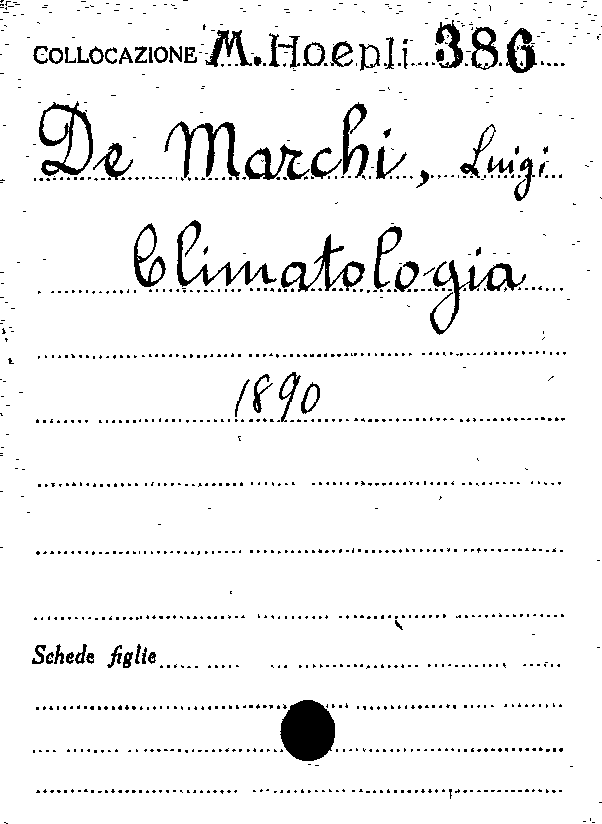 COLLOCAZIONE M. Hoepli 386
De Marchi, Luigi
Climatologia
1890
Schede figlie